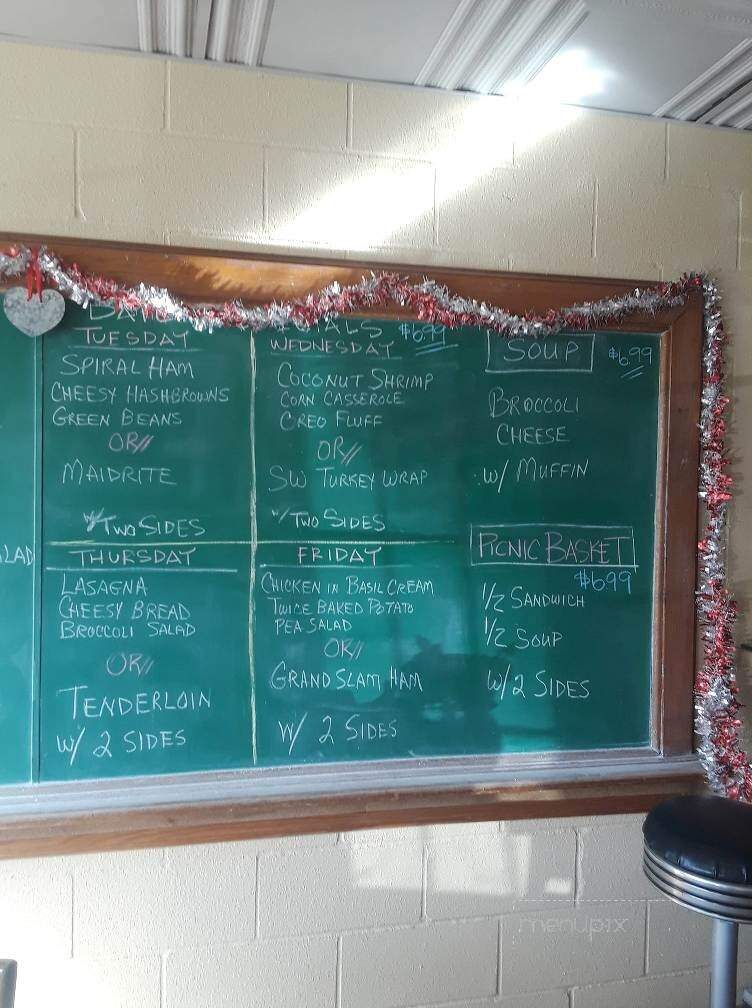 TUESDAY
SPIRAL HAM
CHEESY HASHBROWNS
GREEN BEANS
OR//
MAIDRITE
W/ TWO SIDES
$6.99
WEDNESDAY
COCONUT SHRIMP
CORN CASSEROLE
OREO FLUFF
OR//
SW TURKEY WRAP
W/ TWO SIDES
SOUP
$6.99
BROCCOLI
CHEESE
W/ MUFFIN
THURSDAY
LASAGNA
CHEESY BREAD
BROCCOLI SALAD
OR//
TENDERLOIN
W/ 2 SIDES
FRIDAY
CHICKEN IN BASIL CREAM
TWICE BAKED POTATO
PEA SALAD
OR//
GRAND SLAM HAM
W/ 2 SIDES
PICNIC BASKET
$6.99
1/2 SANDWICH
1/2 SOUP
W/ 2 SIDES
menupix